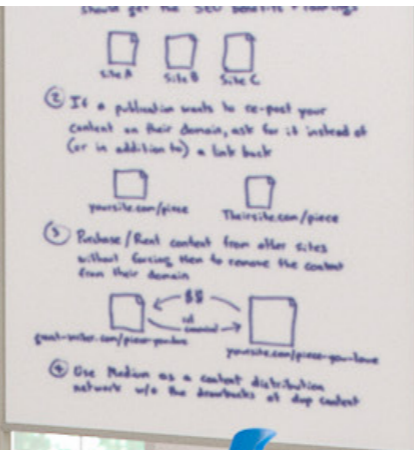 should get the SEO benefits + rankings
Site A Site B Site C
② If a publication wants to re-post your
content on their domain, ask for it instead of
(or in addition to) a link back
yoursite.com/piece Theirsite.com/piece
③ Purchase/Rent content from other sites
without forcing them to remove the content
from their domain
$$
rel
canonical
yoursite.com/piece-you-love
④ Use Medium as a content distribution
network w/o the drawbacks of dup content